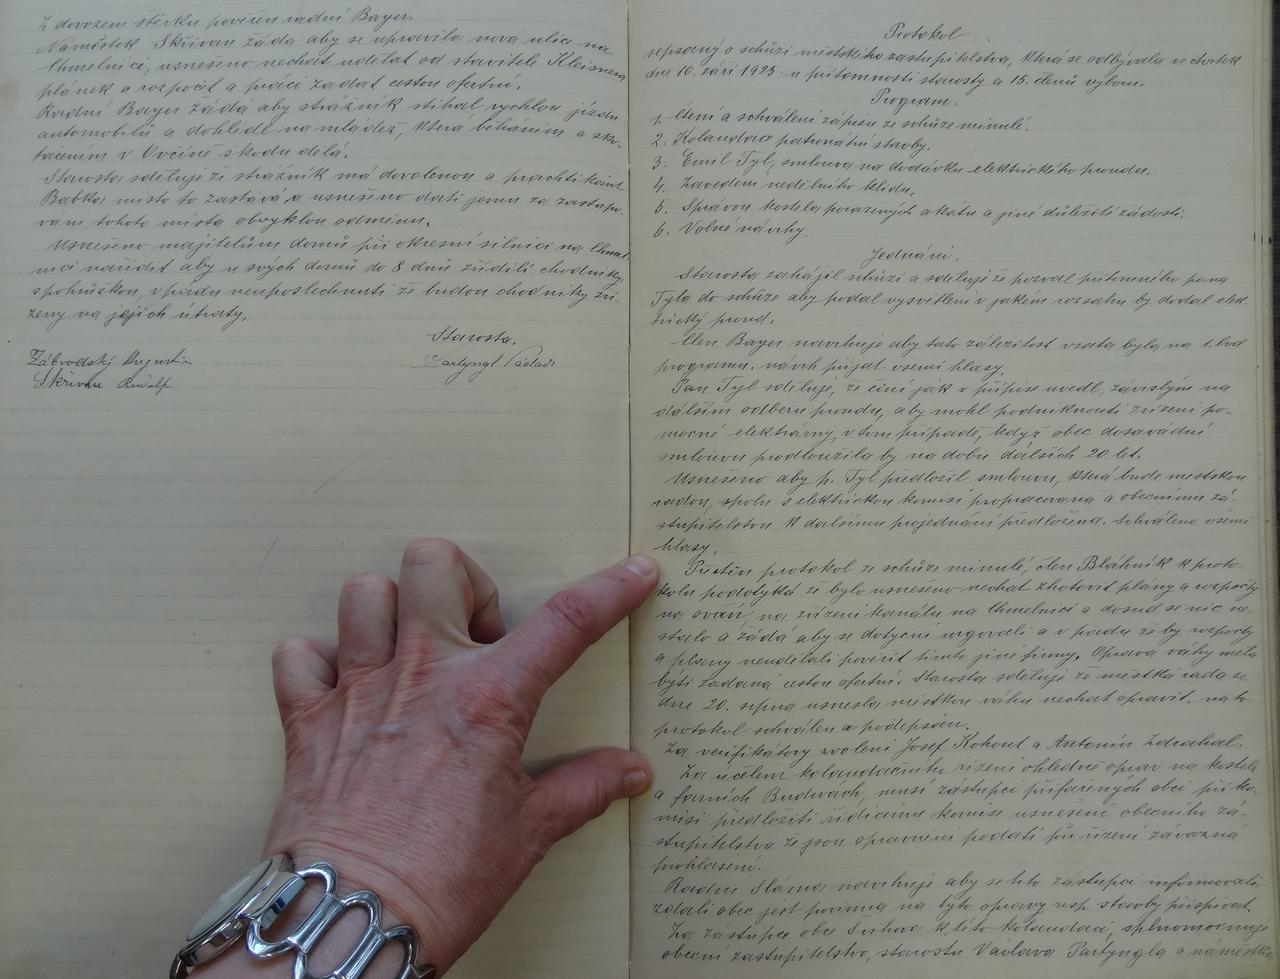 Z dovozem štěrku pověřen radní Bayer.
Náměstek Skřivan žádá aby se upravila nová ulice na
Chmelnici, usneseno nechat udělat od stavitele Kleisnera
plánek a rozpočet a práci zadat cestou ofertní.
Radní Bayer žádá aby strážník stíhal rychlou jízdu
automobilů a dohlédl na mládež, která běháním a sko-
tačením v Ovčíně škodu dělá.
Starosta sděluje že strážník má dovolenou a prachtikant
Babka místo to zastává a usneseno dáti jemu za zastupo-
vání tohoto místa obvyklou odměnu.
Usneseno majitelům domů při okresní silnici na Chmel-
nici naříditi aby u svých domů do 8 dnů zřídili chodníky
s pohrůžkou, v pádu neuposlechnutí že budou chodníky zří-
zeny na jejich útraty.
Starosta.
Zábrodský Augustin
Partyngl Václav
Skřivan Rudolf
Protokol
sepsaný o schůzi městského zastupitelstva, která se odbývala ve čtvrtek
dne 10. září 1925 u přítomnosti starosty a 15. členů výboru.
Program.
1. Čtení a schválení zápisu ze schůze minulé.
2. Kolaudace patronátní stavby.
3. Emil Tyl, smlouva na dodávku elektrického proudu.
4. Zavedení nedělního klidu.
5. Správou kostela poražených akátů a jiné důležité žádosti.
6. Volné návrhy.
Jednání.
Starosta zahájil schůzi a sděluje že pozval přítomného pana
Tyla do schůze aby podal vysvětlení v jakém rozsahu by dodal elek-
trický proud.
Člen Bayer navrhuje aby tato záležitost vzata byla na 1. bod
programu. návrh přijat všemi hlasy.
Pan Tyl sděluje, že činí jak v přípise uvedl, závislým na
dalším odběru proudu, aby mohl podniknouti zřízení po-
mocné elektrárny, v tom případě, když obec dosavádní
smlouvu prodloužila by na dobu dalších 20 let.
Usnešeno aby p. Tyl předložil smlouvu, která bude městskou
radou, spolu s elektrickou komisí propracovaná a obecnímu zá-
stupitelstvu k dalšímu projednání předložena. Schváleno všemi
hlasy.
Přečtěn protokol ze schůze minulé, člen Bláhník k proto-
kolu podotýká že bylo usneseno nechat zhotovit plány a rozpočty
na zřízení kanálu na Chmelnici a dosud se nic ne-
stalo a žádá aby se dotyční urgovali a v pádu že by rozpočty
a plány neudělali pověřit tímto jiné firmy. Oprava váhy měla
býti zadaná cestou ofertní. Starosta sděluje že městká rada se
dne 20. srpna usnesla městkou váhu nechat opravit. na to
protokol schválen a podepsán.
Za verifikátory zvoleni Josef Kohout a Antonín Zdrahal.
Za účelem kolaudačního řízení ohledně oprav na kostele
a farních Budovách, musí zástupci přifařených obcí při ko-
misi předložiti řídícímu komise usnešení obecního zá-
stupitelstva že jsou oprávněni podati při řízení závazná
prohlášení.
Radní Sláma navrhuje aby se tito zástupci informovali,
zdali obec jest povinna na tyto opravy resp. stavby přispívat.
Za zástupce obce k této kolaudaci, splnomocňuje
obecní zastupitelstvo, starostu Václava Partyngla a náměstka